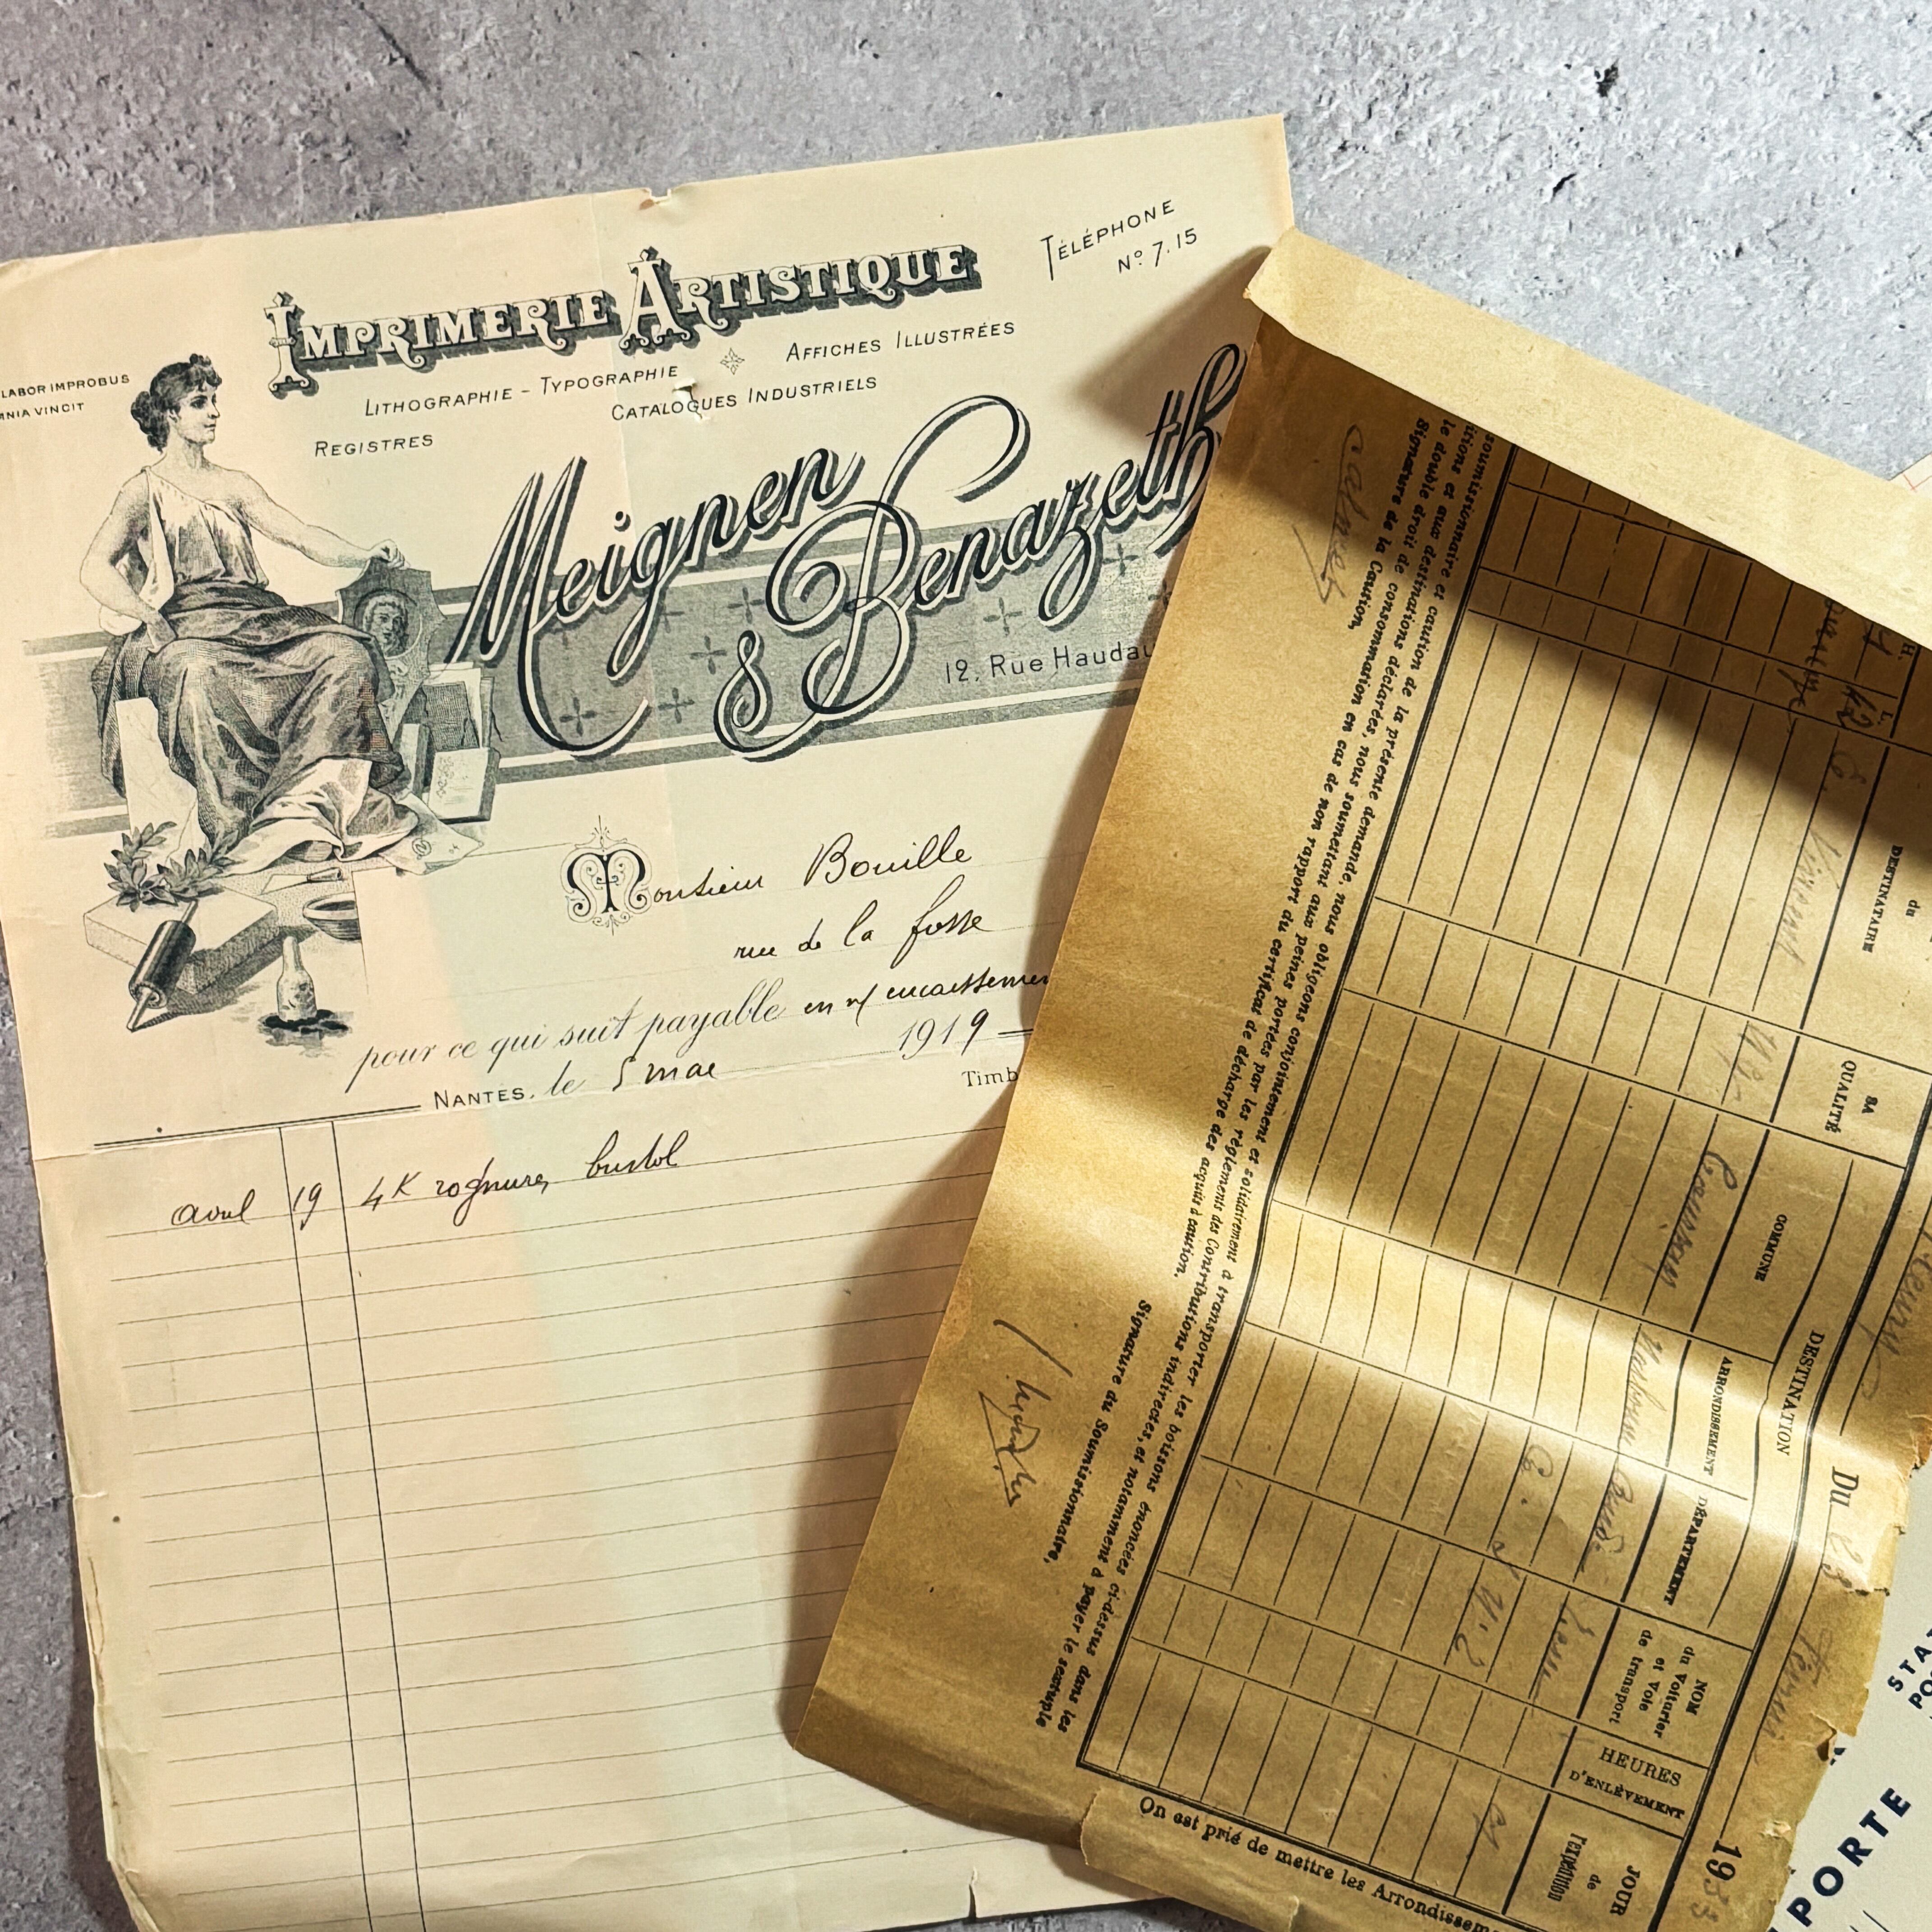 IMPRIMERIE ARTISTIQUE
TÉLÉPHONE
Nº 7.15
LABOR IMPROBUS
MNIA VINCIT
LITHOGRAPHIE - TYPOGRAPHIE
AFFICHES ILLUSTRÉES
CATALOGUES INDUSTRIELS
REGISTRES
Meignen
& Benazeth
12, Rue Haudau
Monsieur Bouille
rue de la fosse
pour ce qui suit payable en n/ encaissemen
NANTES, le 5 mai 1919
Timb
avril 19 4K rognures bristol
soumissionnaire et caution de la présente demande, nous obligeons conjointement et solidairement à transporter les boissons énoncées ci-dessus dans les
itions et aux destinations déclarées, nous soumettant aux peines portées par les règlements des Contributions indirectes, et notamment à payer le sextuple
le double droit de consommation en cas de non rapport du certificat de décharge des acquits à caution.
Signature de la Caution,
Signature du Soumissionnaire,
H. L.
42
du
DESTINATAIRE
SA
QUALITÉ
DESTINATION
COMMUNE
ARRONDISSEMENT
DÉPARTEMENT
NOM
du Voiturier
et Voie
de transport
HEURES
D'ENLÈVEMENT
JOUR
de
l'expédition
Vincent
Coursan
Narbonne
Aude
Du 23
1933
On est prié de mettre les Arrondisseme
STAT
PO
PORTE